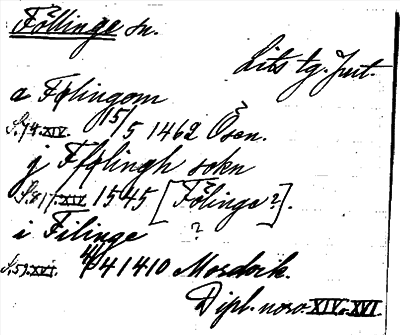 Föllinge sn.
Lits tg. Jmt.
a Følingom
S. 74. XIV. 15/5 1462 Ösen.
j Fføلingh sokn
S. 817. XIV 1545 [Fölinge?].
i Filinge ?
S. 59. XVI. 4/4 1410 Mordvik.
Dipl. norv. XIV o. XVI.